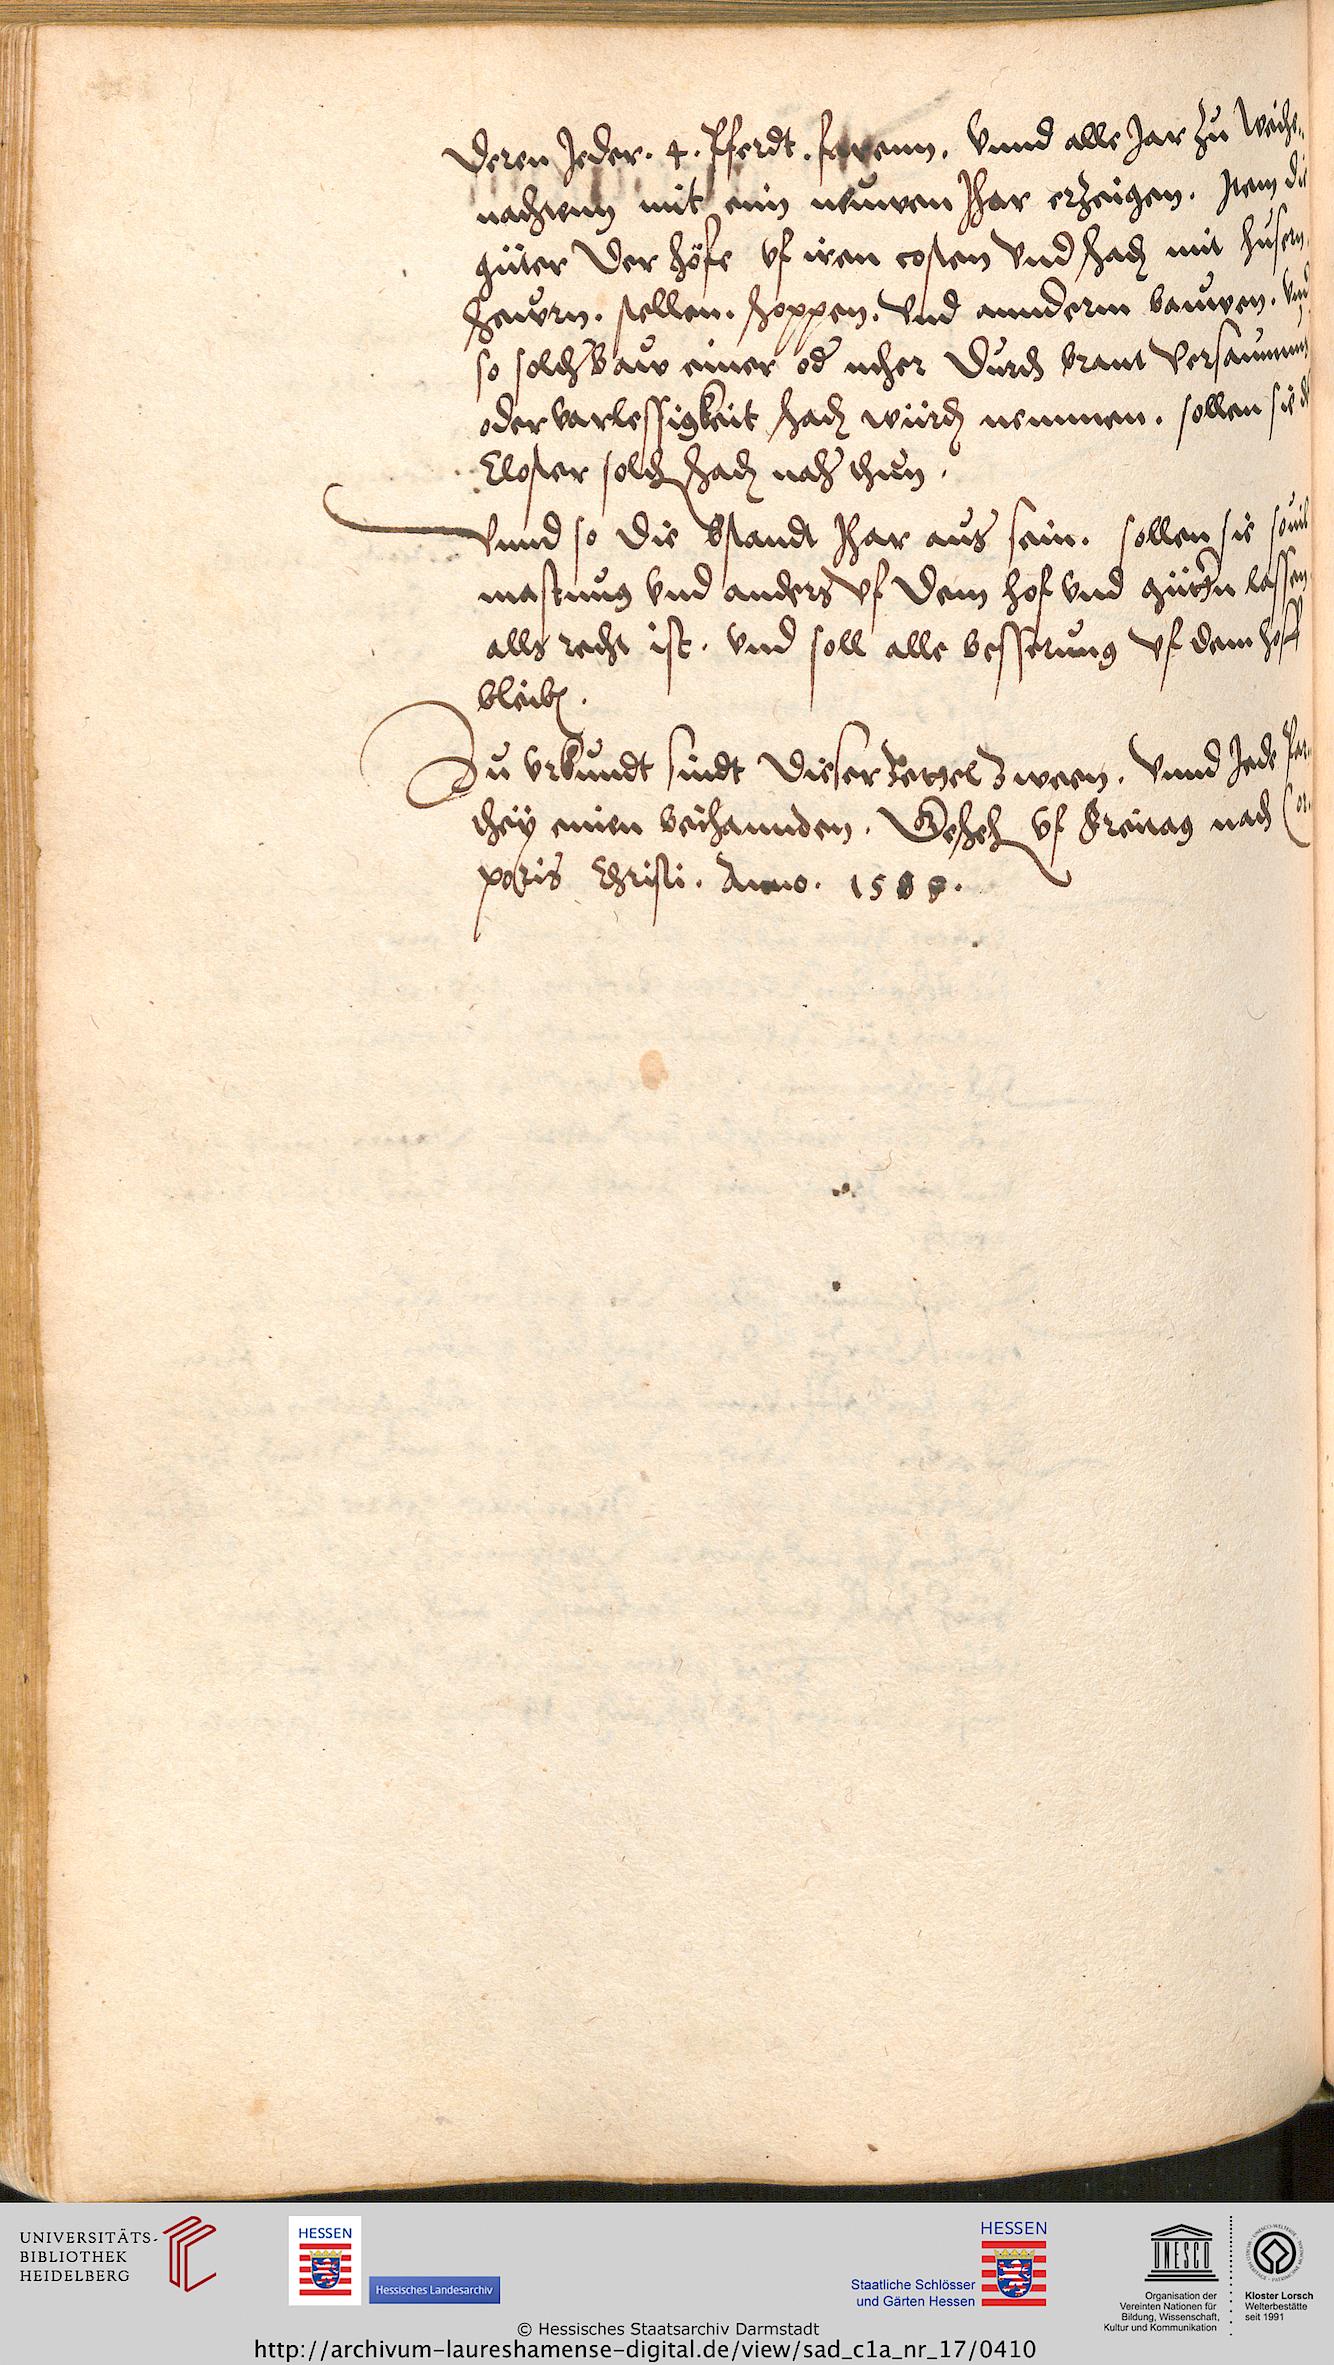 Deren Jeder. 4. Pferdt. Vnnd alle Jar zu
mit eim neuwen Jhar erzeigen. Item die
güter Der höfe vf iren costen Vnd schad mit husern
schewrn. stellen. schoppen. Vnd annderm bauwen. Vnd
so solch baw einer od Durch brant Versaumnus
oder varlessigkeit schad würd nemmen. sollen sie
Closter solch schad thun.
Vnnd so Die bstandt Jhar aus sein. sollen sie souil
mastung vnd anders vf Dem hof vnd güttern lassen
alls recht ist. vnd soll alle besserung vf dem hoff
bleib.
Zu vrkundt sindt Dieser Zettel Zween. Vnnd Jede Par-
they einen beihannden. Gescheh vf Freitag nach Cor-
poris Christi. Anno.
UNIVERSITÄTS-
BIBLIOTHEK
HEIDELBERG
HESSEN
Hessisches Landesarchiv
HESSEN
Staatliche Schlösser
und Gärten Hessen
UNESCO
Organisation der
Vereinten Nationen für
Bildung, Wissenschaft,
Kultur und Kommunikation
Kloster Lorsch
Welterbestätte
seit 1991
© Hessisches Staatsarchiv Darmstadt
http://archivum-laureshamense-digital.de/view/sad_c1a_nr_17/0410